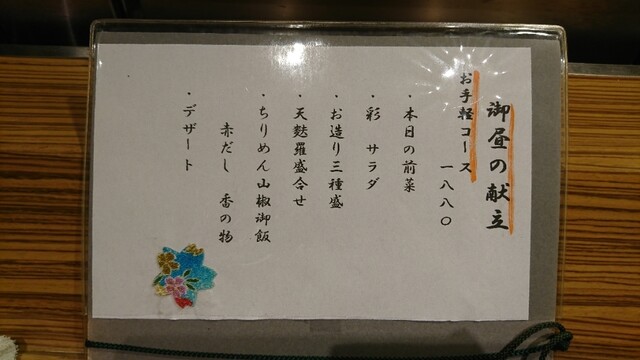 御昼の献立
お手軽コース
一八八〇
・本日の前菜
・彩 サラダ
・お造り三種盛
・天麩羅盛合せ
・ちりめん山椒御飯
赤だし 香の物
・デザート